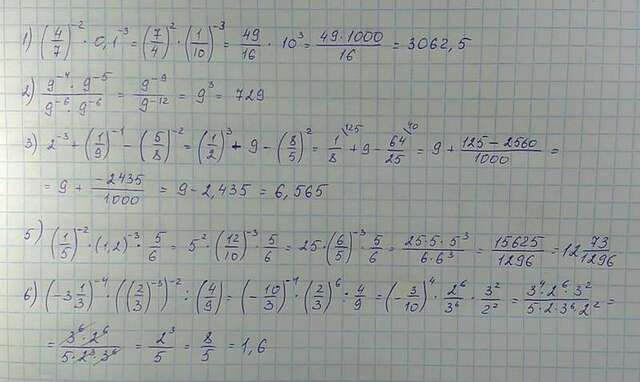 1) (4/7)^-2 · 0,1^-3 = (7/4)^2 · (1/10)^-3 = 49/16 · 10^3 = 49·1000/16 = 3062,5
2) 9^-4 · 9^-5 / 9^-6 · 9^-6 = 9^-9 / 9^-12 = 9^3 = 729
3) 2^-3 + (1/9)^-1 - (5/8)^-2 = (1/2)^3 + 9 - (8/5)^2 = 1/8 \125 + 9 - 64/25 \40 = 9 + 125-2560/1000 =
= 9 + -2435/1000 = 9 - 2,435 = 6,565
5) (1/5)^-2 · (1,2)^-3 · 5/6 = 5^2 · (12/10)^-3 · 5/6 = 25 · (6/5)^-3 · 5/6 = 25·5·5^3/6·6^3 = 15625/1296 = 12 73/1296
6) (-3 1/3)^-4 · ((2/3)^-3)^-2 : (4/9) = (-10/3)^-4 · (2/3)^6 : 4/9 = (-3/10)^4 · 2^6/3^6 · 3^2/2^2 = 3^4·2^6·3^2/5·2·3^6·2^2 =
= 3^6·2^6/5·2^3·3^6 = 2^3/5 = 8/5 = 1,6